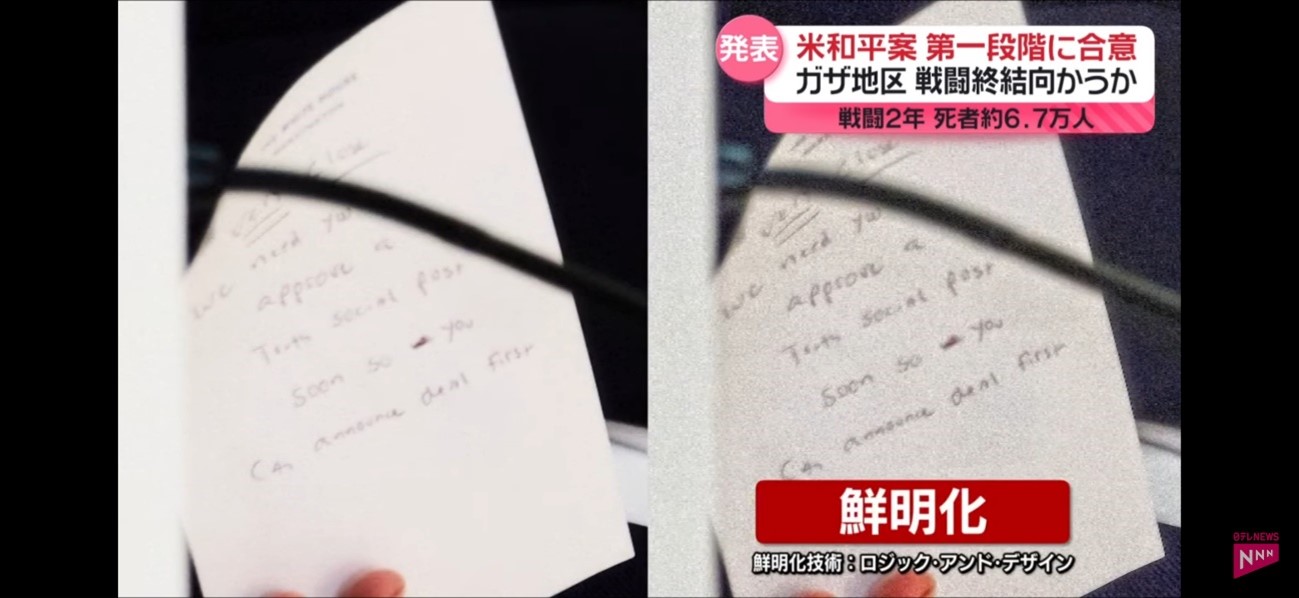 Very close
we need you
approve a
Truth social post
soon so you
can announce deal first
発表
米和平案 第一段階に合意
ガザ地区 戦闘終結向かうか
戦闘2年 死者約6.7万人
close
we need you
approve a
Truth social post
soon so you
can announce deal first
鮮明化
鮮明化技術：ロジック・アンド・デザイン
日テレNEWS
NNN